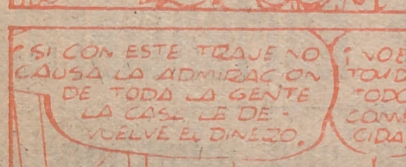 ¡SI CON ESTE TRAJE NO
CAUSA LA ADMIRACION
DE TODA LA GENTE
LA CASA LE DE-
VUELVE EL DINERO.
¡NO E
TODO
COM
CIDA